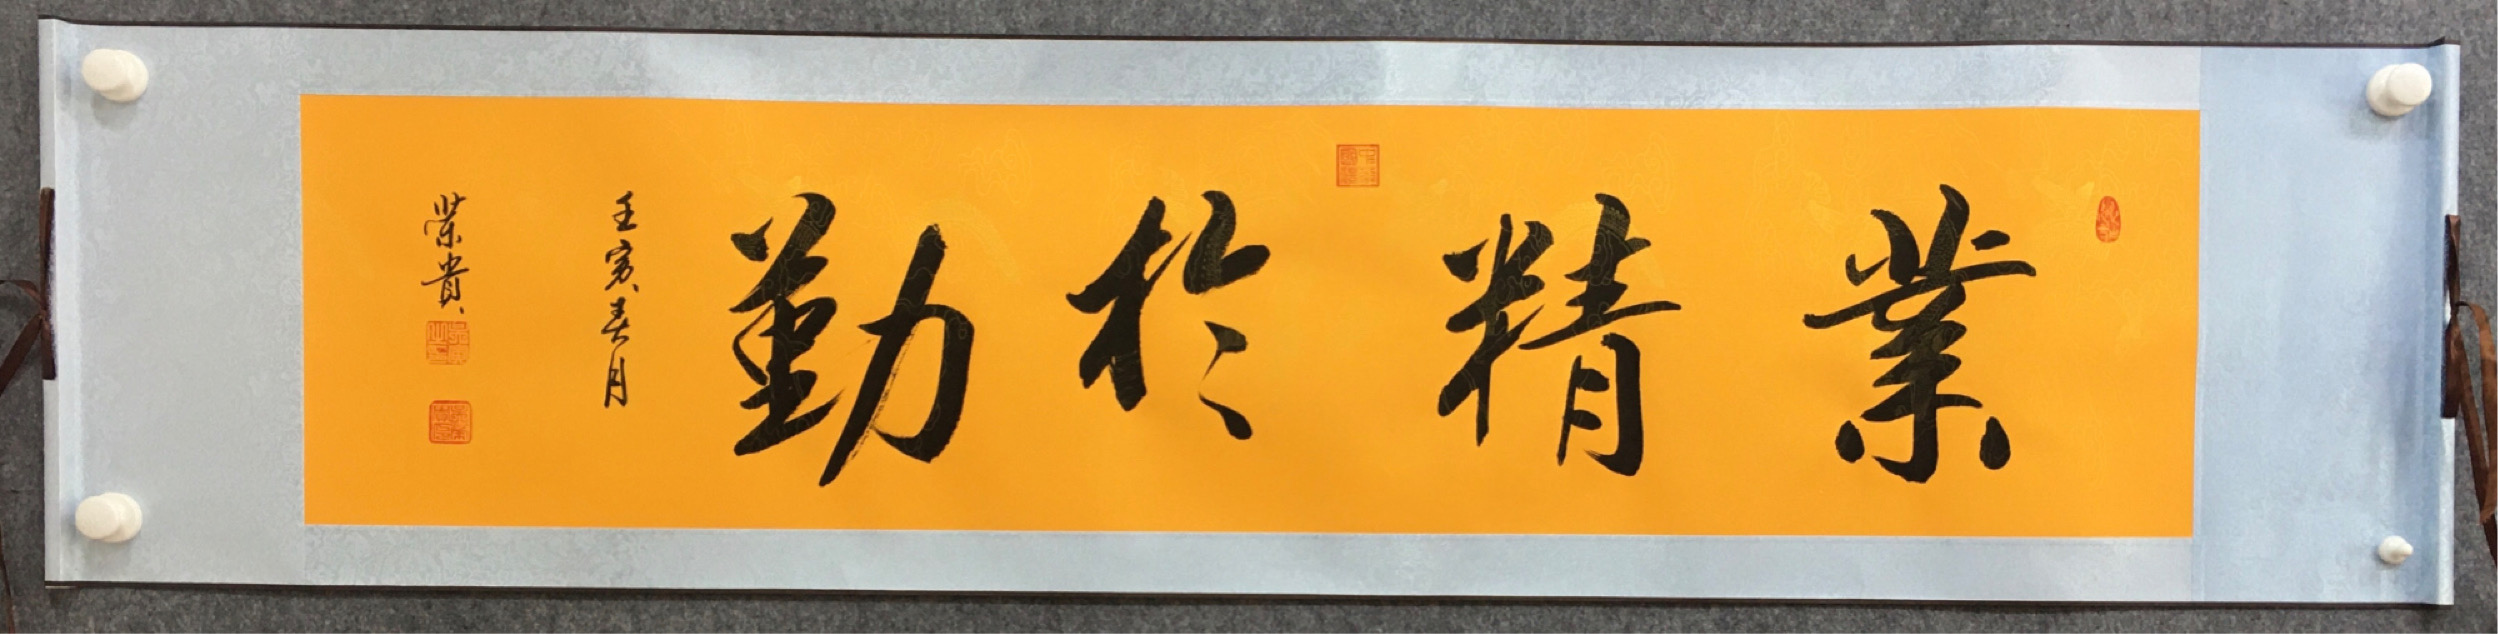 業精於勤
壬寅春月
榮貴